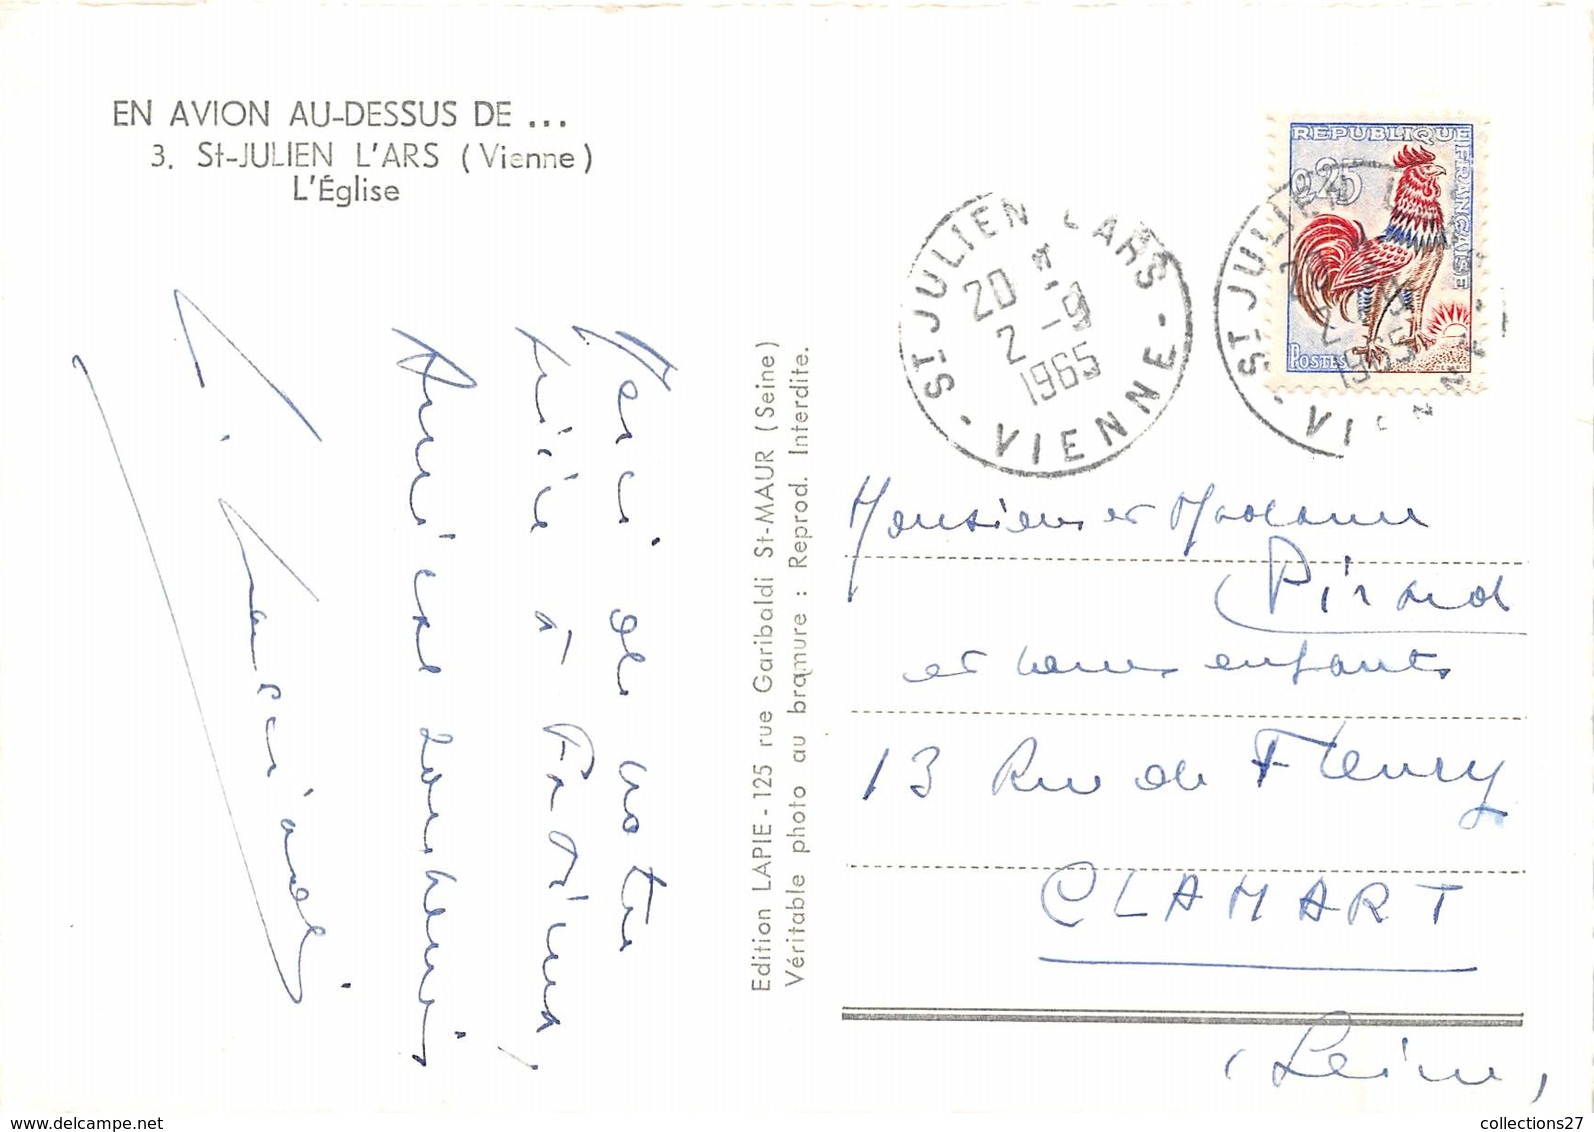 EN AVION AU-DESSUS DE ...
3. St-JULIEN L'ARS (Vienne)
L'Église
Merci de votre
à Fatima,
Amical souvenir
L.
Edition LAPIE - 125 rue Garibaldi St-MAUR (Seine)
Véritable photo au bramure : Reprod. Interdite.
ST JULIEN L'ARS
20 H
2 -9
1965
- VIENNE -
REPUBLIQUE FRANÇAISE
0,25
POSTES
ST JULIEN L'ARS
20 H
2 -9
1965
- VIENNE -
Monsieur et Madame
Pirard
et leurs enfants
13 Rue de Fleury
CLAMART
(Seine)
collections27